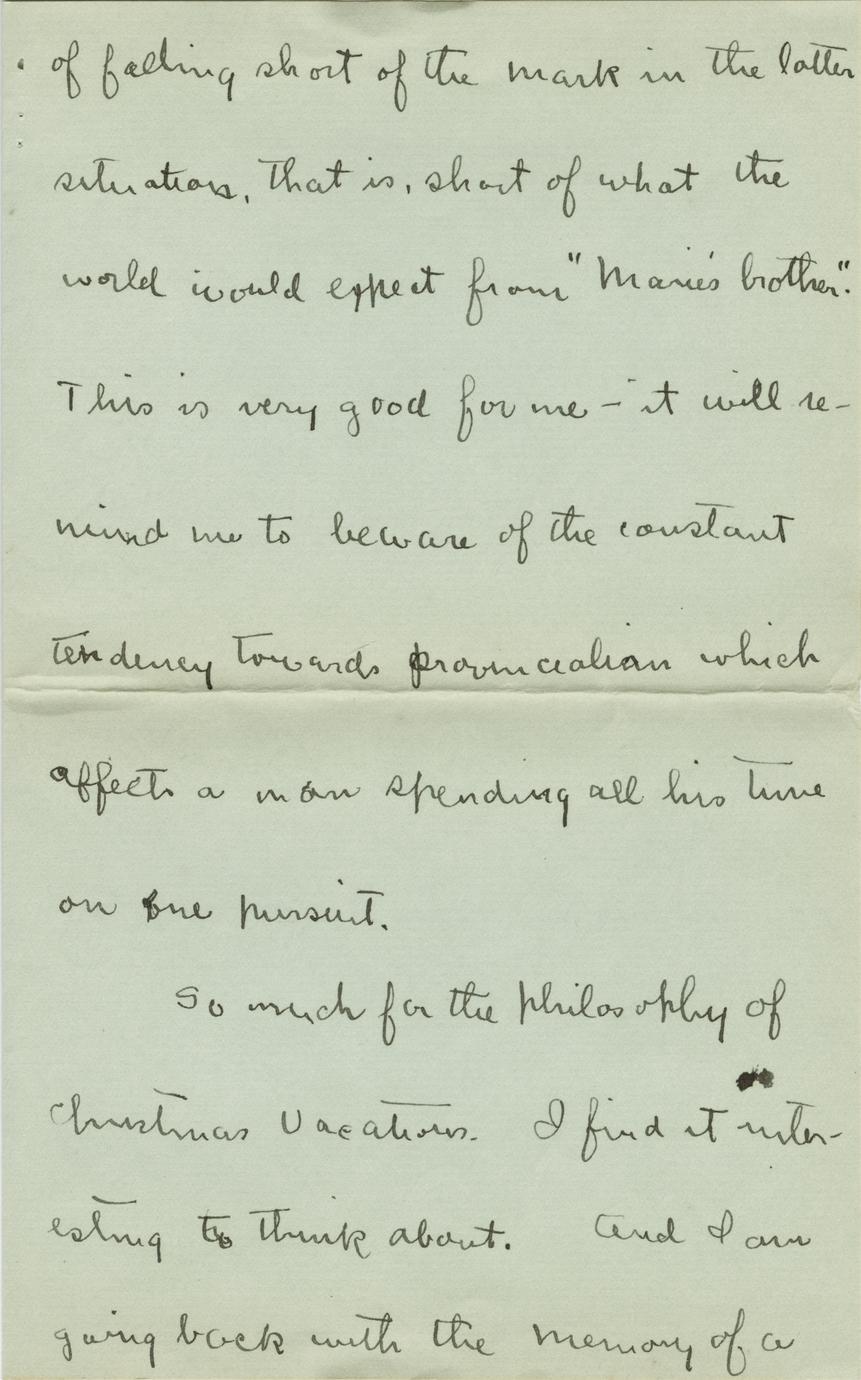 of falling short of the mark in the latter
situation, that is, short of what the
world would expect from "Marie's brother".
This is very good for me - it will re-
mind me to beware of the constant
tendency towards provincialism which
affects a man spending all his time
on one pursuit.
So much for the philosophy of
Christmas Vacations. I find it inter-
esting to think about. And I am
going back with the memory of a